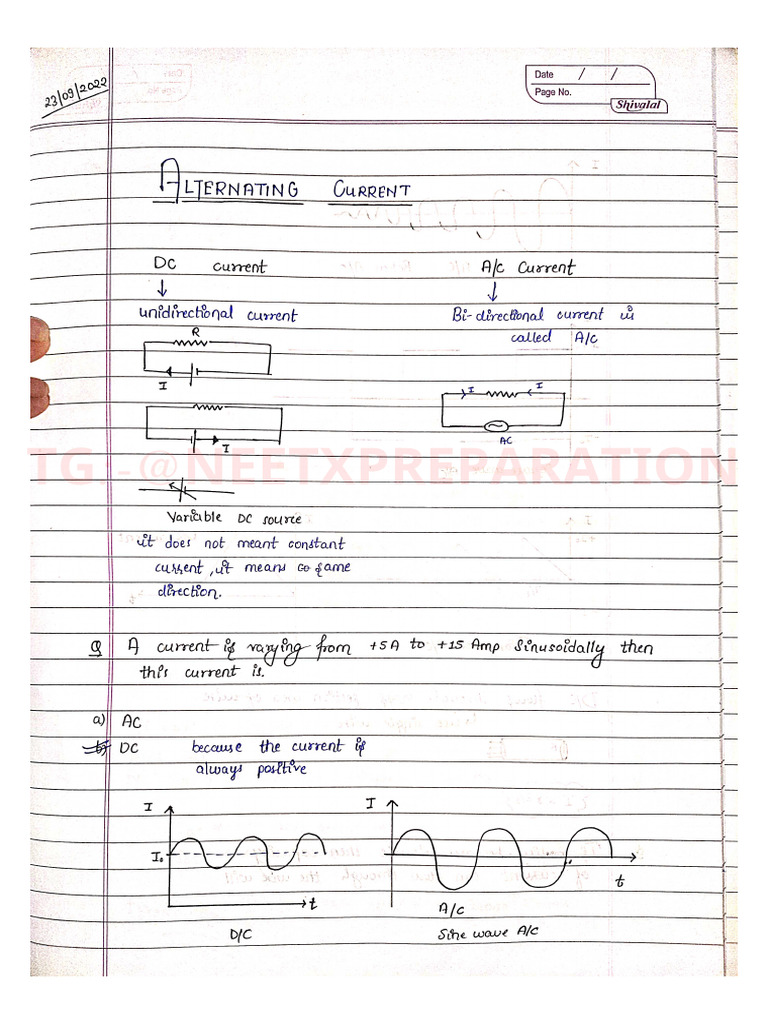 23/09/2022
Date / /
Page No.
Shivalal
ALTERNATING CURRENT
DC current
A/c Current
unidirectional current
Bi-directional current is
called A/c
R
I
I
I I
AC
TG.-@NEETXPREPARATION
Variable DC source
it does not meant constant
current, it means same
direction.
Q A current is varying from +5A to +15 Amp Sinusoidally then
this current is.
a) AC
b) DC because the current is
always positive
I
I
I₀
t
t
A/c
D/C
Sine wave A/C